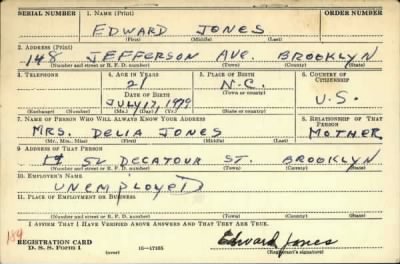 SERIAL NUMBER 1. NAME (Print) ORDER NUMBER
EDWARD JONES
(First) (Middle) (Last)
2. ADDRESS (Print)
148 JEFFERSON AVE. BROOKLYN
(Number and street or R. F. D. number) (Town) (County) (State)
3. TELEPHONE 4. AGE IN YEARS 5. PLACE OF BIRTH 6. COUNTRY OF CITIZENSHIP
21 N.C.
DATE OF BIRTH (Town or county)
JULY 17, U.S.
(Exchange) (Number) (Mo.) (Day) (Yr.) (State or country)
7. NAME OF PERSON WHO WILL ALWAYS KNOW YOUR ADDRESS 8. RELATIONSHIP OF THAT PERSON
MRS. DELIA JONES MOTHER
(Mr., Mrs., Miss) (First) (Middle) (Last)
9. ADDRESS OF THAT PERSON
52 DECATOUR ST. BROOKLYN
(Number and street or R. F. D. number) (Town) (County) (State)
10. EMPLOYER'S NAME
UNEMPLOYED
11. PLACE OF EMPLOYMENT OR BUSINESS
(Number and street or R. F. D. number) (Town) (County) (State)
I AFFIRM THAT I HAVE VERIFIED ABOVE ANSWERS AND THAT THEY ARE TRUE.
REGISTRATION CARD Edward Jones
D. S. S. Form 1 (over) 16—17105 (Registrant's signature)